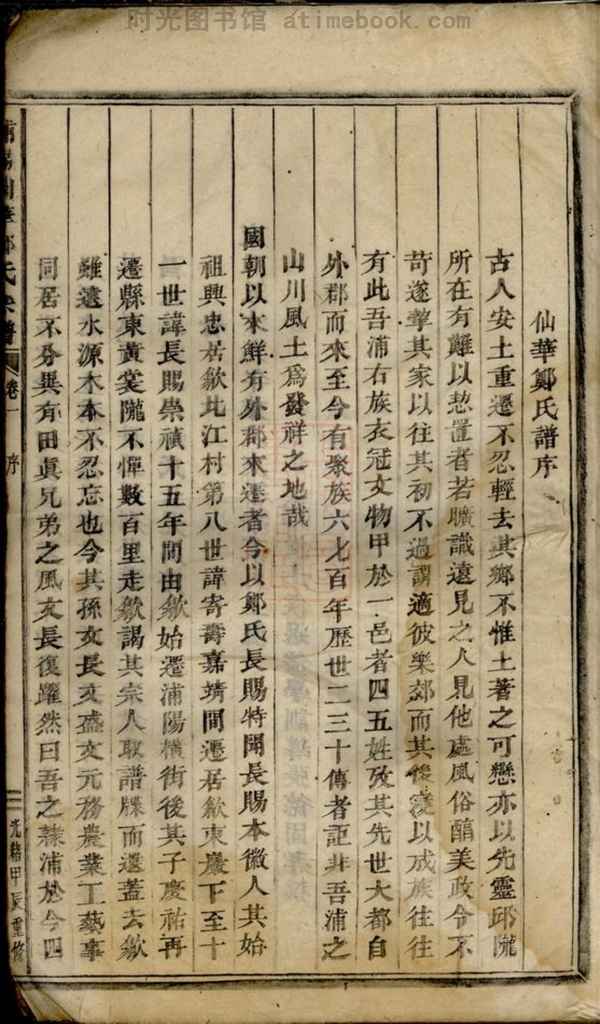 时光图书馆 atimebook.com
仙華鄭氏譜序
古人安土重遷不忍輕去其鄉不惟土著之可戀亦以先靈邱隴
所在有難以恝置者若曠識遠見之人見他處風俗醇美政令不
苛遂挈其家以往其初不過謂適彼樂郊而其後寖以成族往往
有此吾浦右族衣冠文物甲於一邑者四五姓攷其先世大都自
外郡而來至今有聚族六七百年歷世二三十傳者詎非吾浦之
山川風土爲發祥之地哉
國朝以來鮮有外郡來遷者今以鄭氏長賜特開長賜本徽人其始
祖興忠居歙北江村第八世諱寄壽嘉靖間遷居歙東巖下至十
一世諱長賜崇禎十五年間由歙始遷浦陽橫街後其子慶祐再
遷縣東黃棠隴不憚數百里走歙謁其宗人取譜牒而還蓋去歙
雖遠水源木本不忍忘也今其孫文長文盛文元務農業工藝事
同居不分異有田眞兄弟之風文長復躍然曰吾之隸浦於今四
氏宗譜 卷一 序 二 光緒甲辰重修